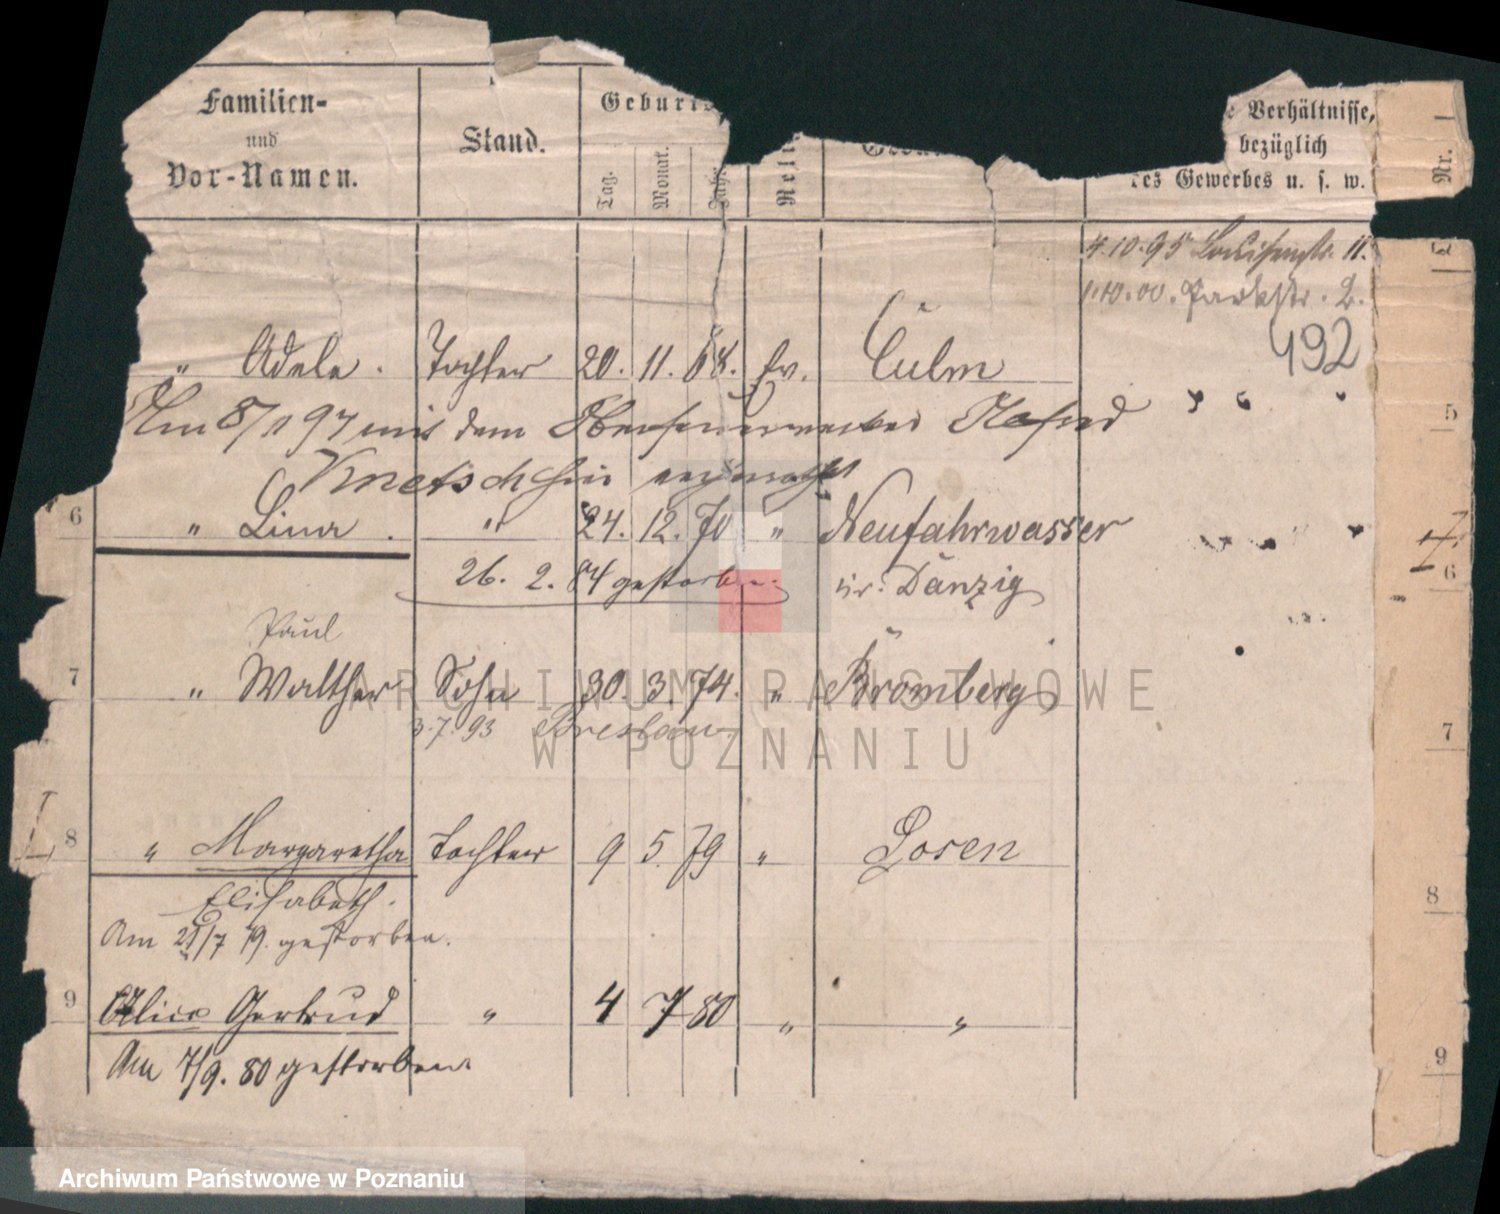 Familien-
und
Vor-Namen.
Stand.
Geburts
Tag. Monat. Jahr.
Reli
Verhältnisse,
bezüglich
des Gewerbes u. s. w.
Nr.
4.10.95 Louisenstr. 11.
1.10.00. Parkstr. 2.
492
" Adele. Tochter 20. 11. 68. Ev. Culm
Am 8/1 97 mit dem
5
6 " Lina. " 24. 12. 70 " Neufahrwasser
26. 2. 84 gestorben. Kr. Danzig
6
Paul
7 " Walther Sohn 30. 3. 74. " Bromberg
3.7.93 Breslau
7
8 " Margaretha Tochter 9 5. 79 " Posen
Elisabeth.
8
Am 21/7 79. gestorben.
9 Alice Gertrud " 4 7 80 " "
9
Am 7/9. 80 gestorben.
ARCHIWUM PAŃSTWOWE
W POZNANIU
Archiwum Państwowe w Poznaniu